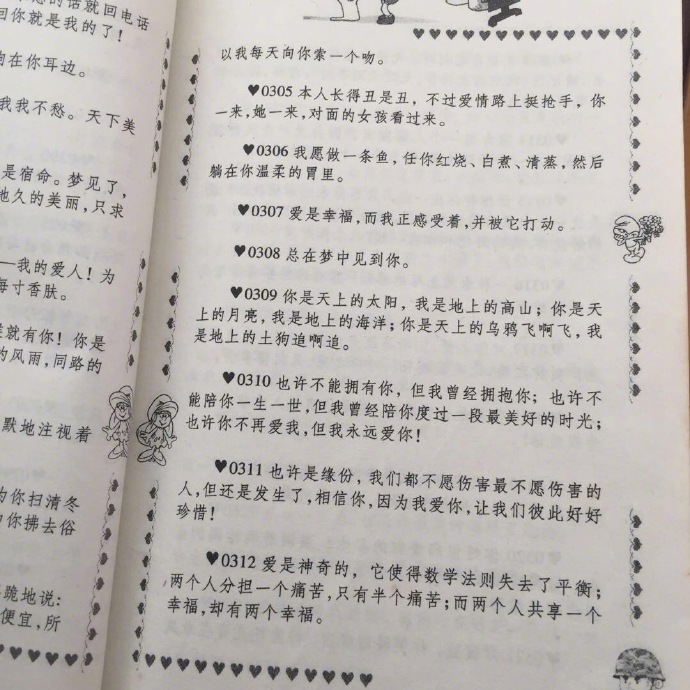 的话就回电话
回你就是我的了！
在你耳边。
我我不愁。天下美
是宿命。梦见了，
地久的美丽，只求
一我的爱人！为
每寸香肤。
就有你！你是
的风雨，同路的
默地注视着
为你扫清冬
你拂去俗
跪地说：
便宜，所
以我每天向你索一个吻。
♥0305 本人长得丑是丑，不过爱情路上挺抢手，你
一来，她一来，对面的女孩看过来。
♥0306 我愿做一条鱼，任你红烧、白煮、清蒸，然后
躺在你温柔的胃里。
♥0307 爱是幸福，而我正感受着，并被它打动。
♥0308 总在梦中见到你。
♥0309 你是天上的太阳，我是地上的高山；你是天
上的月亮，我是地上的海洋；你是天上的乌鸦飞啊飞，我
是地上的土狗追啊追。
♥0310 也许不能拥有你，但我曾经拥抱你；也许不
能陪你一生一世，但我曾经陪你度过一段最美好的时光；
也许你不再爱我，但我永远爱你！
♥0311 也许是缘份，我们都不愿伤害最不愿伤害的
人，但还是发生了，相信你，因为我爱你，让我们彼此好好
珍惜！
♥0312 爱是神奇的，它使得数学法则失去了平衡；
两个人分担一个痛苦，只有半个痛苦；而两个人共享一个
幸福，却有两个幸福。